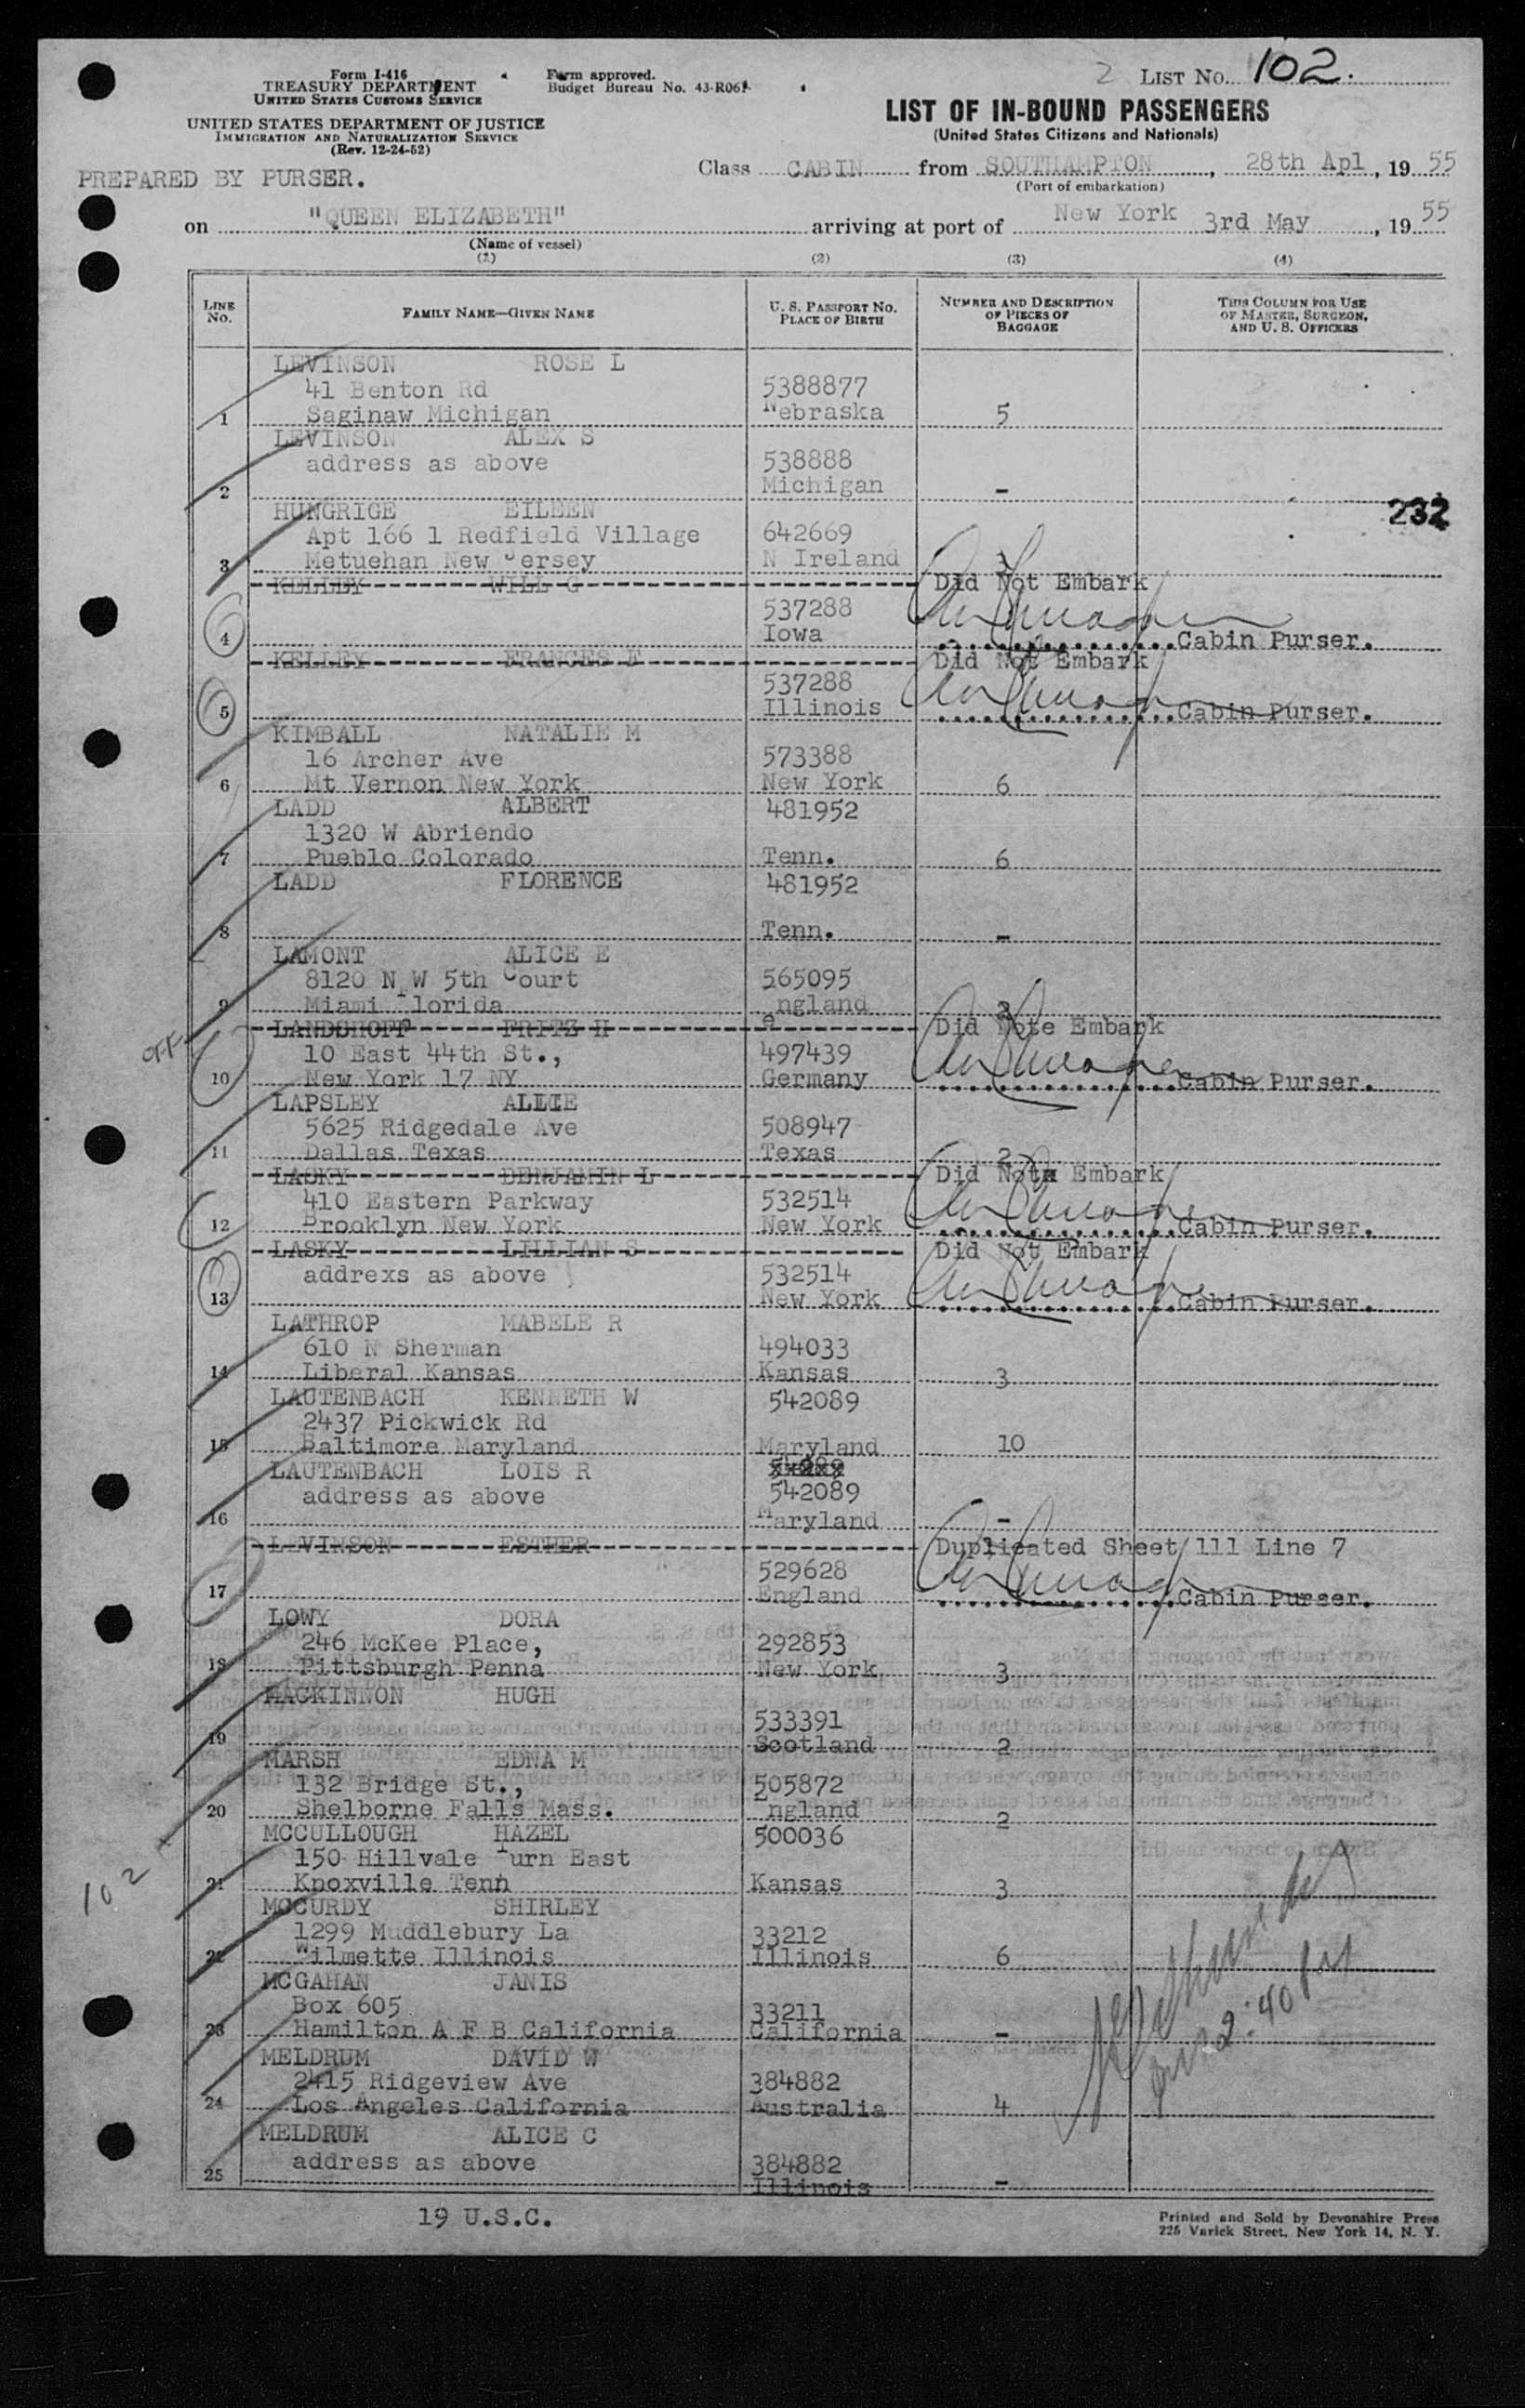 2 LIST NO. 102.
Form I-416
TREASURY DEPARTMENT
UNITED STATES CUSTOMS SERVICE
Form approved.
Budget Bureau No. 43-R061
UNITED STATES DEPARTMENT OF JUSTICE
IMMIGRATION AND NATURALIZATION SERVICE
(Rev. 12-24-52)
LIST OF IN-BOUND PASSENGERS
(United States Citizens and Nationals)
PREPARED BY PURSER.
Class CABIN from SOUTHAMPTON, 28th Apl, 1955
(Port of embarkation)
on "QUEEN ELIZABETH" arriving at port of New York 3rd May, 1955
(Name of vessel)
(1) (2) (3) (4)
LINE NO. FAMILY NAME—GIVEN NAME U. S. PASSPORT NO. PLACE OF BIRTH NUMBER AND DESCRIPTION OF PIECES OF BAGGAGE THIS COLUMN FOR USE OF MASTER, SURGEON, AND U. S. OFFICERS
LEVINSON ROSE L
41 Benton Rd 5388877
1 Saginaw Michigan Nebraska 5
LEVINSON ALEX S
address as above 538888
2 Michigan -
232
HUNGRIGE EILEEN
Apt 166 1 Redfield Village 642669
3 Metuehan New Jersey N Ireland
KELLEY WILL G Did Not Embark
537288
4 Iowa Cabin Purser.
KELLEY FRANCES E Did Not Embark
537288
5 Illinois Cabin Purser.
KIMBALL NATALIE M
16 Archer Ave 573388
6 Mt Vernon New York New York 6
LADD ALBERT 481952
1320 W Abriendo
7 Pueblo Colorado Tenn. 6
LADD FLORENCE 481952
8 Tenn. -
LAMONT ALICE E
8120 N W 5th Court 565095
9 Miami Florida england 2
OFF
LANDSHOFF FRITZ H Did Note Embark
10 East 44th St., 497439
10 New York 17 NY Germany Cabin Purser.
LAPSLEY ALLIE
5625 Ridgedale Ave 508947
11 Dallas Texas Texas 2
LASKY BENJAMIN L Did Not Embark
410 Eastern Parkway 532514
12 Brooklyn New York New York Cabin Purser.
LASKY LILLIAN S Did Not Embark
addrexs as above 532514
13 New York Cabin Purser.
LATHROP MABELE R
610 N Sherman 494033
14 Liberal Kansas Kansas 3
LAUTENBACH KENNETH W 542089
2437 Pickwick Rd
15 Baltimore Maryland Maryland 10
LAUTENBACH LOIS R
address as above 542089
16 Maryland -
LEVINSON ESTHER Duplicated Sheet 111 Line 7
529628
17 England Cabin Purser.
LOWY DORA
246 McKee Place, 292853
18 Pittsburgh Penna New York 3
MACKINNON HUGH
533391
19 Scotland 2
MARSH EDNA M
132 Bridge St., 505872
20 Shelborne Falls Mass. England 2
MCCULLOUGH HAZEL 500036
150 Hillvale Turn East
21 Knoxville Tenn Kansas 3
102
MCCURDY SHIRLEY
1299 Muddlebury La 33212
22 Wilmette Illinois Illinois 6
MCGAHAN JANIS
Box 605 33211
23 Hamilton A F B California California -
MELDRUM DAVID W
2415 Ridgeview Ave 384882
24 Los Angeles California Australia 4
MELDRUM ALICE C
address as above 384882
25 Illinois -
19 U.S.C.
Printed and Sold by Devonshire Press
225 Varick Street, New York 14, N. Y.